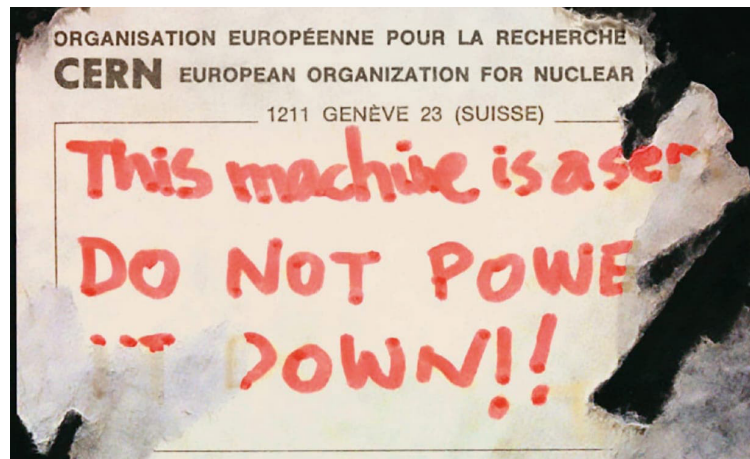 ORGANISATION EUROPÉENNE POUR LA RECHERCHE
CERN EUROPEAN ORGANIZATION FOR NUCLEAR
1211 GENÈVE 23 (SUISSE)
This machine is a ser
DO NOT POWE
IT DOWN!!